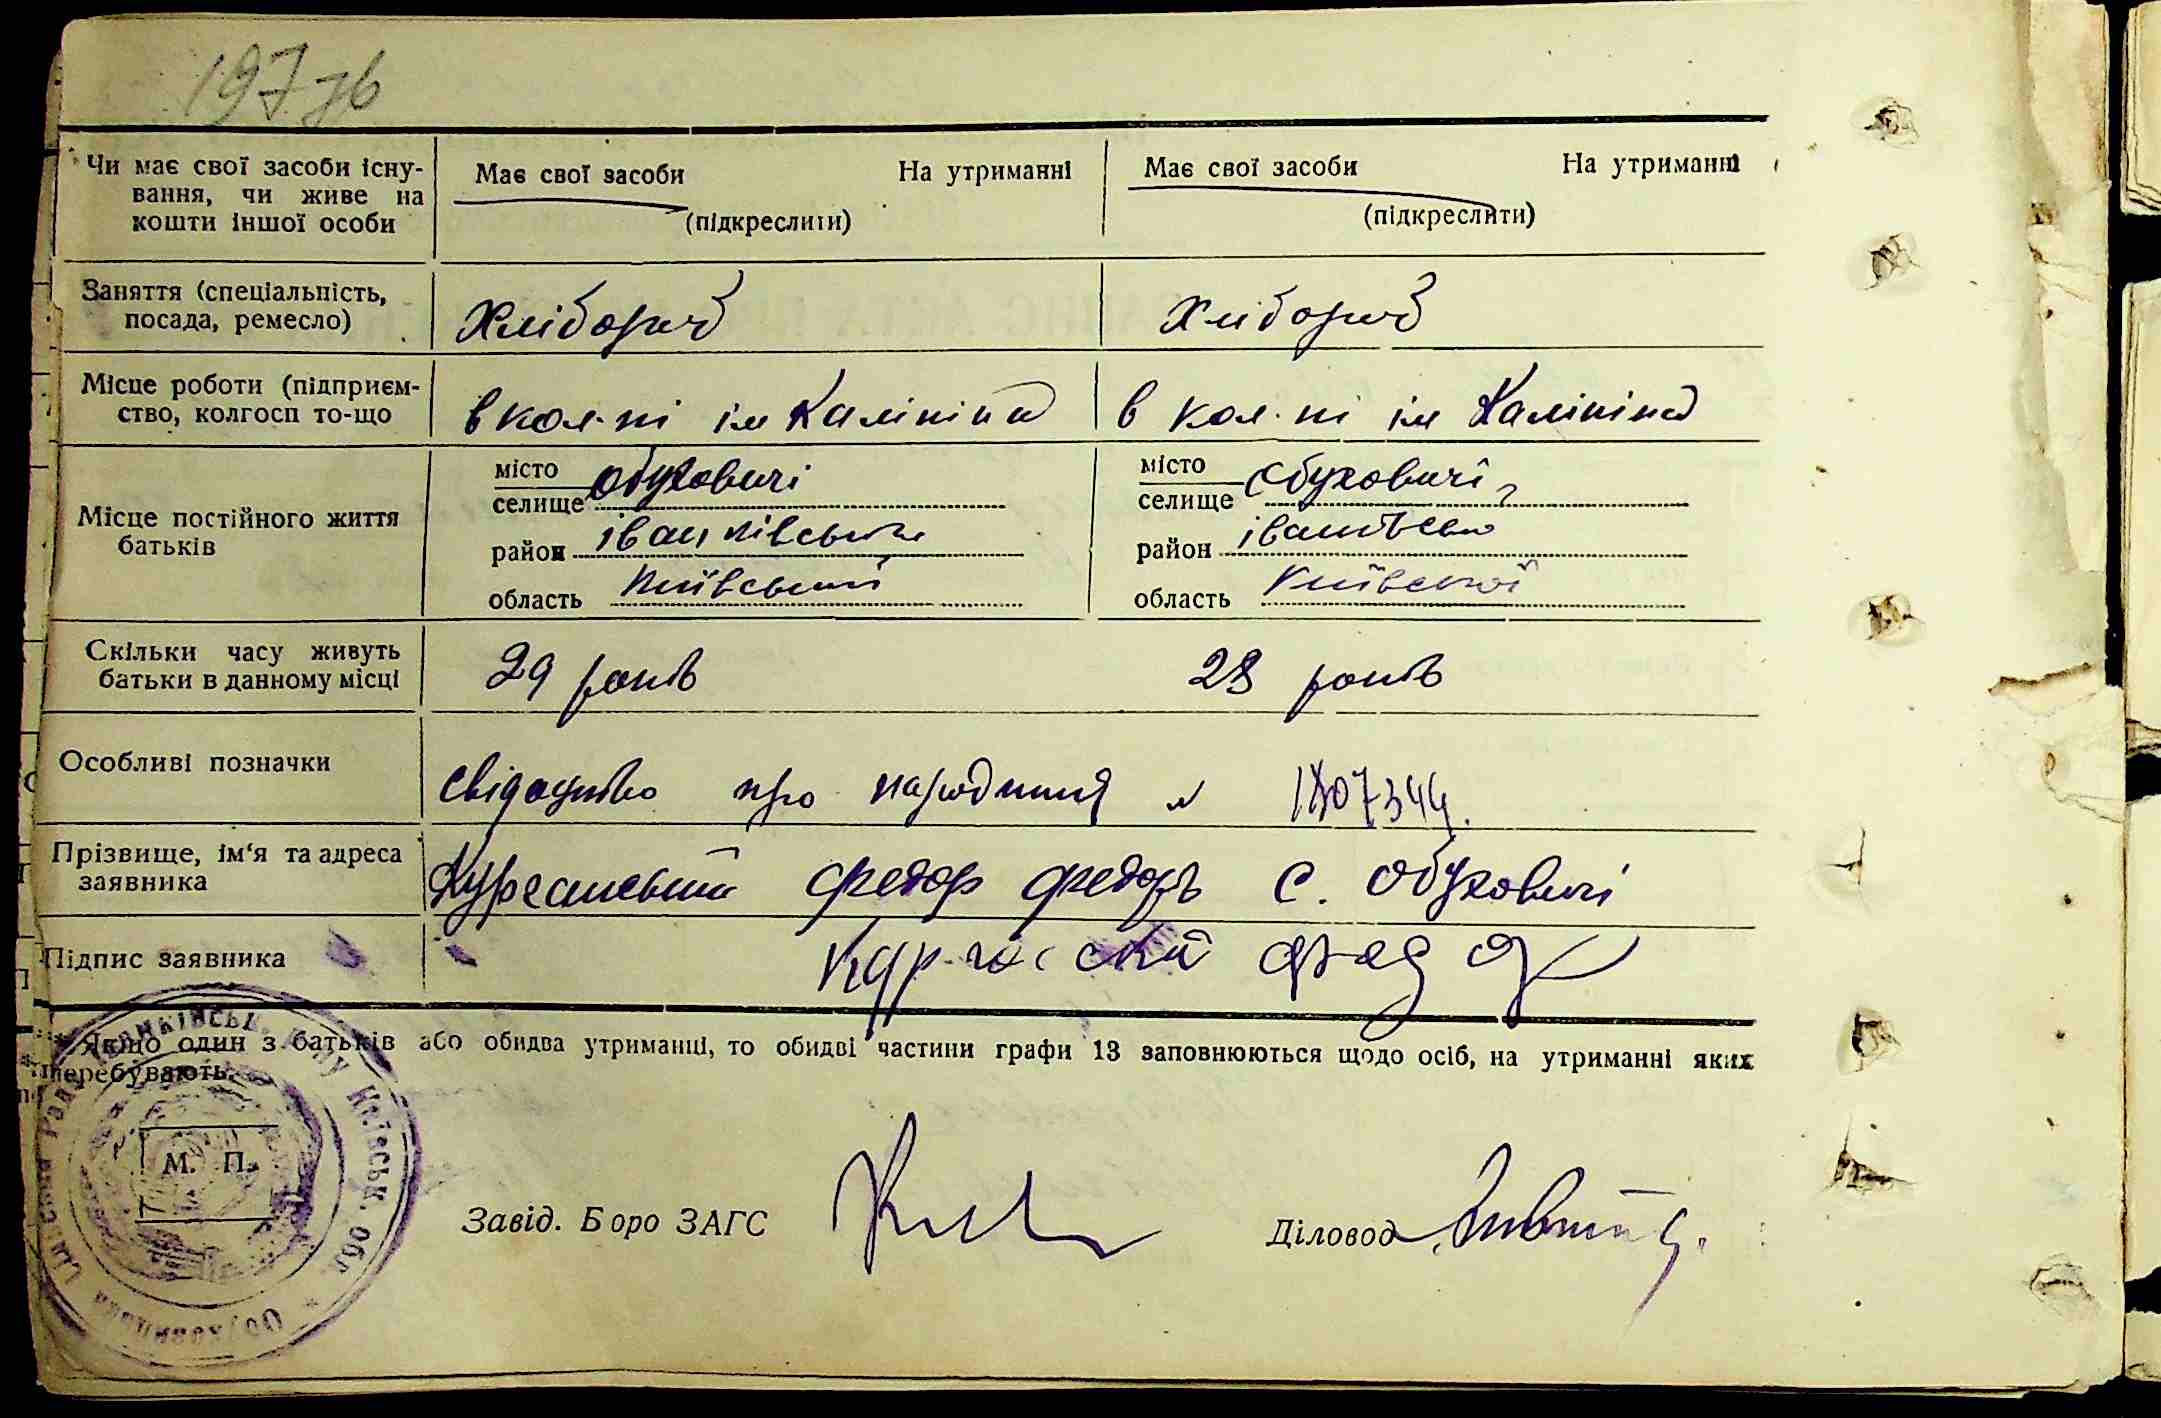 197 зв
Чи має свої засоби існу-
вання, чи живе на
кошти іншої особи
Має свої засоби На утриманні
(підкреслити)
Має свої засоби На утриманні
(підкреслити)
Заняття (спеціальність,
посада, ремесло)
Хлібороб
Хлібороб
Місце роботи (підприєм-
ство, колгосп то-що
в кол-пі ім Калініна
в кол-пі ім Калініна
Місце постійного життя
батьків
місто
селище Обуховичі
район іванківський
область Київський
місто
селище Обуховичі
район
область Київської
Скільки часу живуть
батьки в данному місці
29 років
28 років
Особливі позначки
свідоцтво про народження №
Прізвище, ім'я та адреса
заявника
Федор с. Обуховичі
Підпис заявника
Якщо один з батьків або обидва утриманці, то обидві частини графи 13 заповнюються щодо осіб, на утриманні яких
перебувають.
М. П.
Завід. Бюро ЗАГС
Діловод